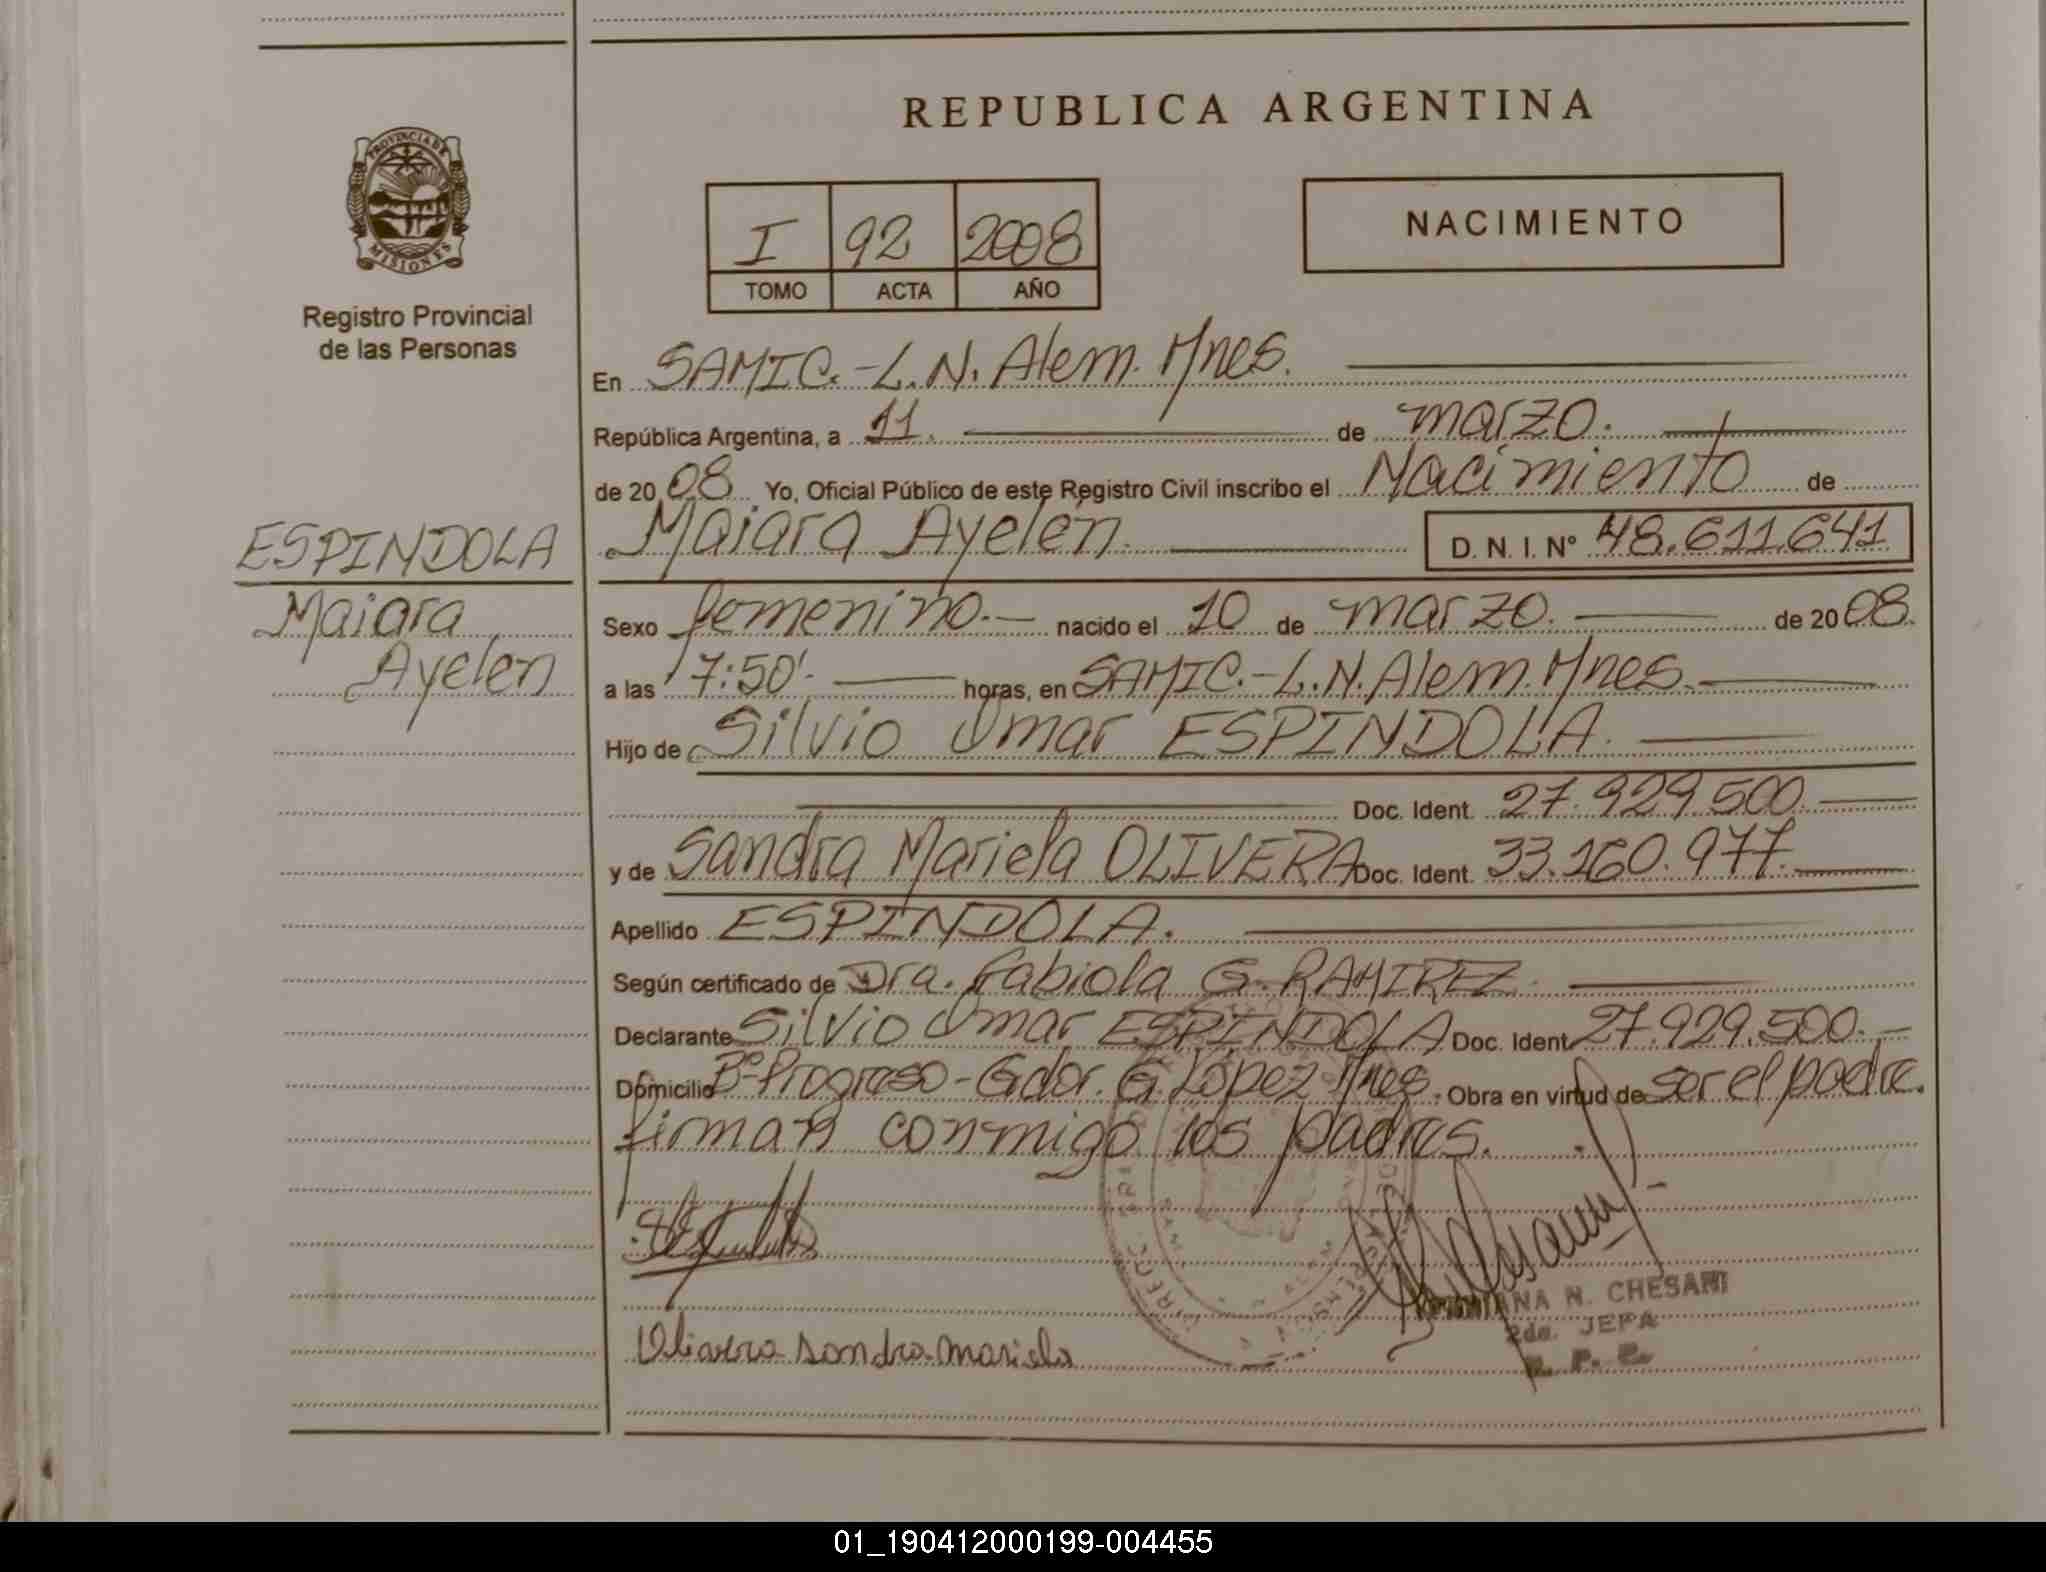 REPUBLICA ARGENTINA
PROVINCIA DE
MISIONES
Registro Provincial
de las Personas
I 92 2008
TOMO ACTA AÑO
NACIMIENTO
En SAMIC.-L.N. Alem. Mnes.
República Argentina, a 11. de marzo.
de 20 08. Yo, Oficial Público de este Registro Civil inscribo el Nacimiento de
ESPINDOLA
Maiara
Ayelen
Maiara Ayelén. D. N. I. Nº 48.611.641
Sexo femenino.- nacido el 10 de marzo. de 20 08.
a las 17:50'. horas, en SAMIC.-L.N. Alem. Mnes.
Hijo de Silvio Omar ESPINDOLA.
Doc. Ident. 27.929.500.
y de Sandra Mariela OLIVERA Doc. Ident. 33.160.977.
Apellido ESPINDOLA.
Según certificado de Dra. Fabiola G. RAMIREZ.
Declarante Silvio Omar ESPINDOLA Doc. Ident. 27.929.500.-
Domicilio Bº Progreso - Gdor. G. López Mnes. Obra en virtud de ser el padre.
firman conmigo los padres.
N. CHESANI
2da. JEFA
R. P. P.
Olivera Sandra Mariela
01_190412000199-004455